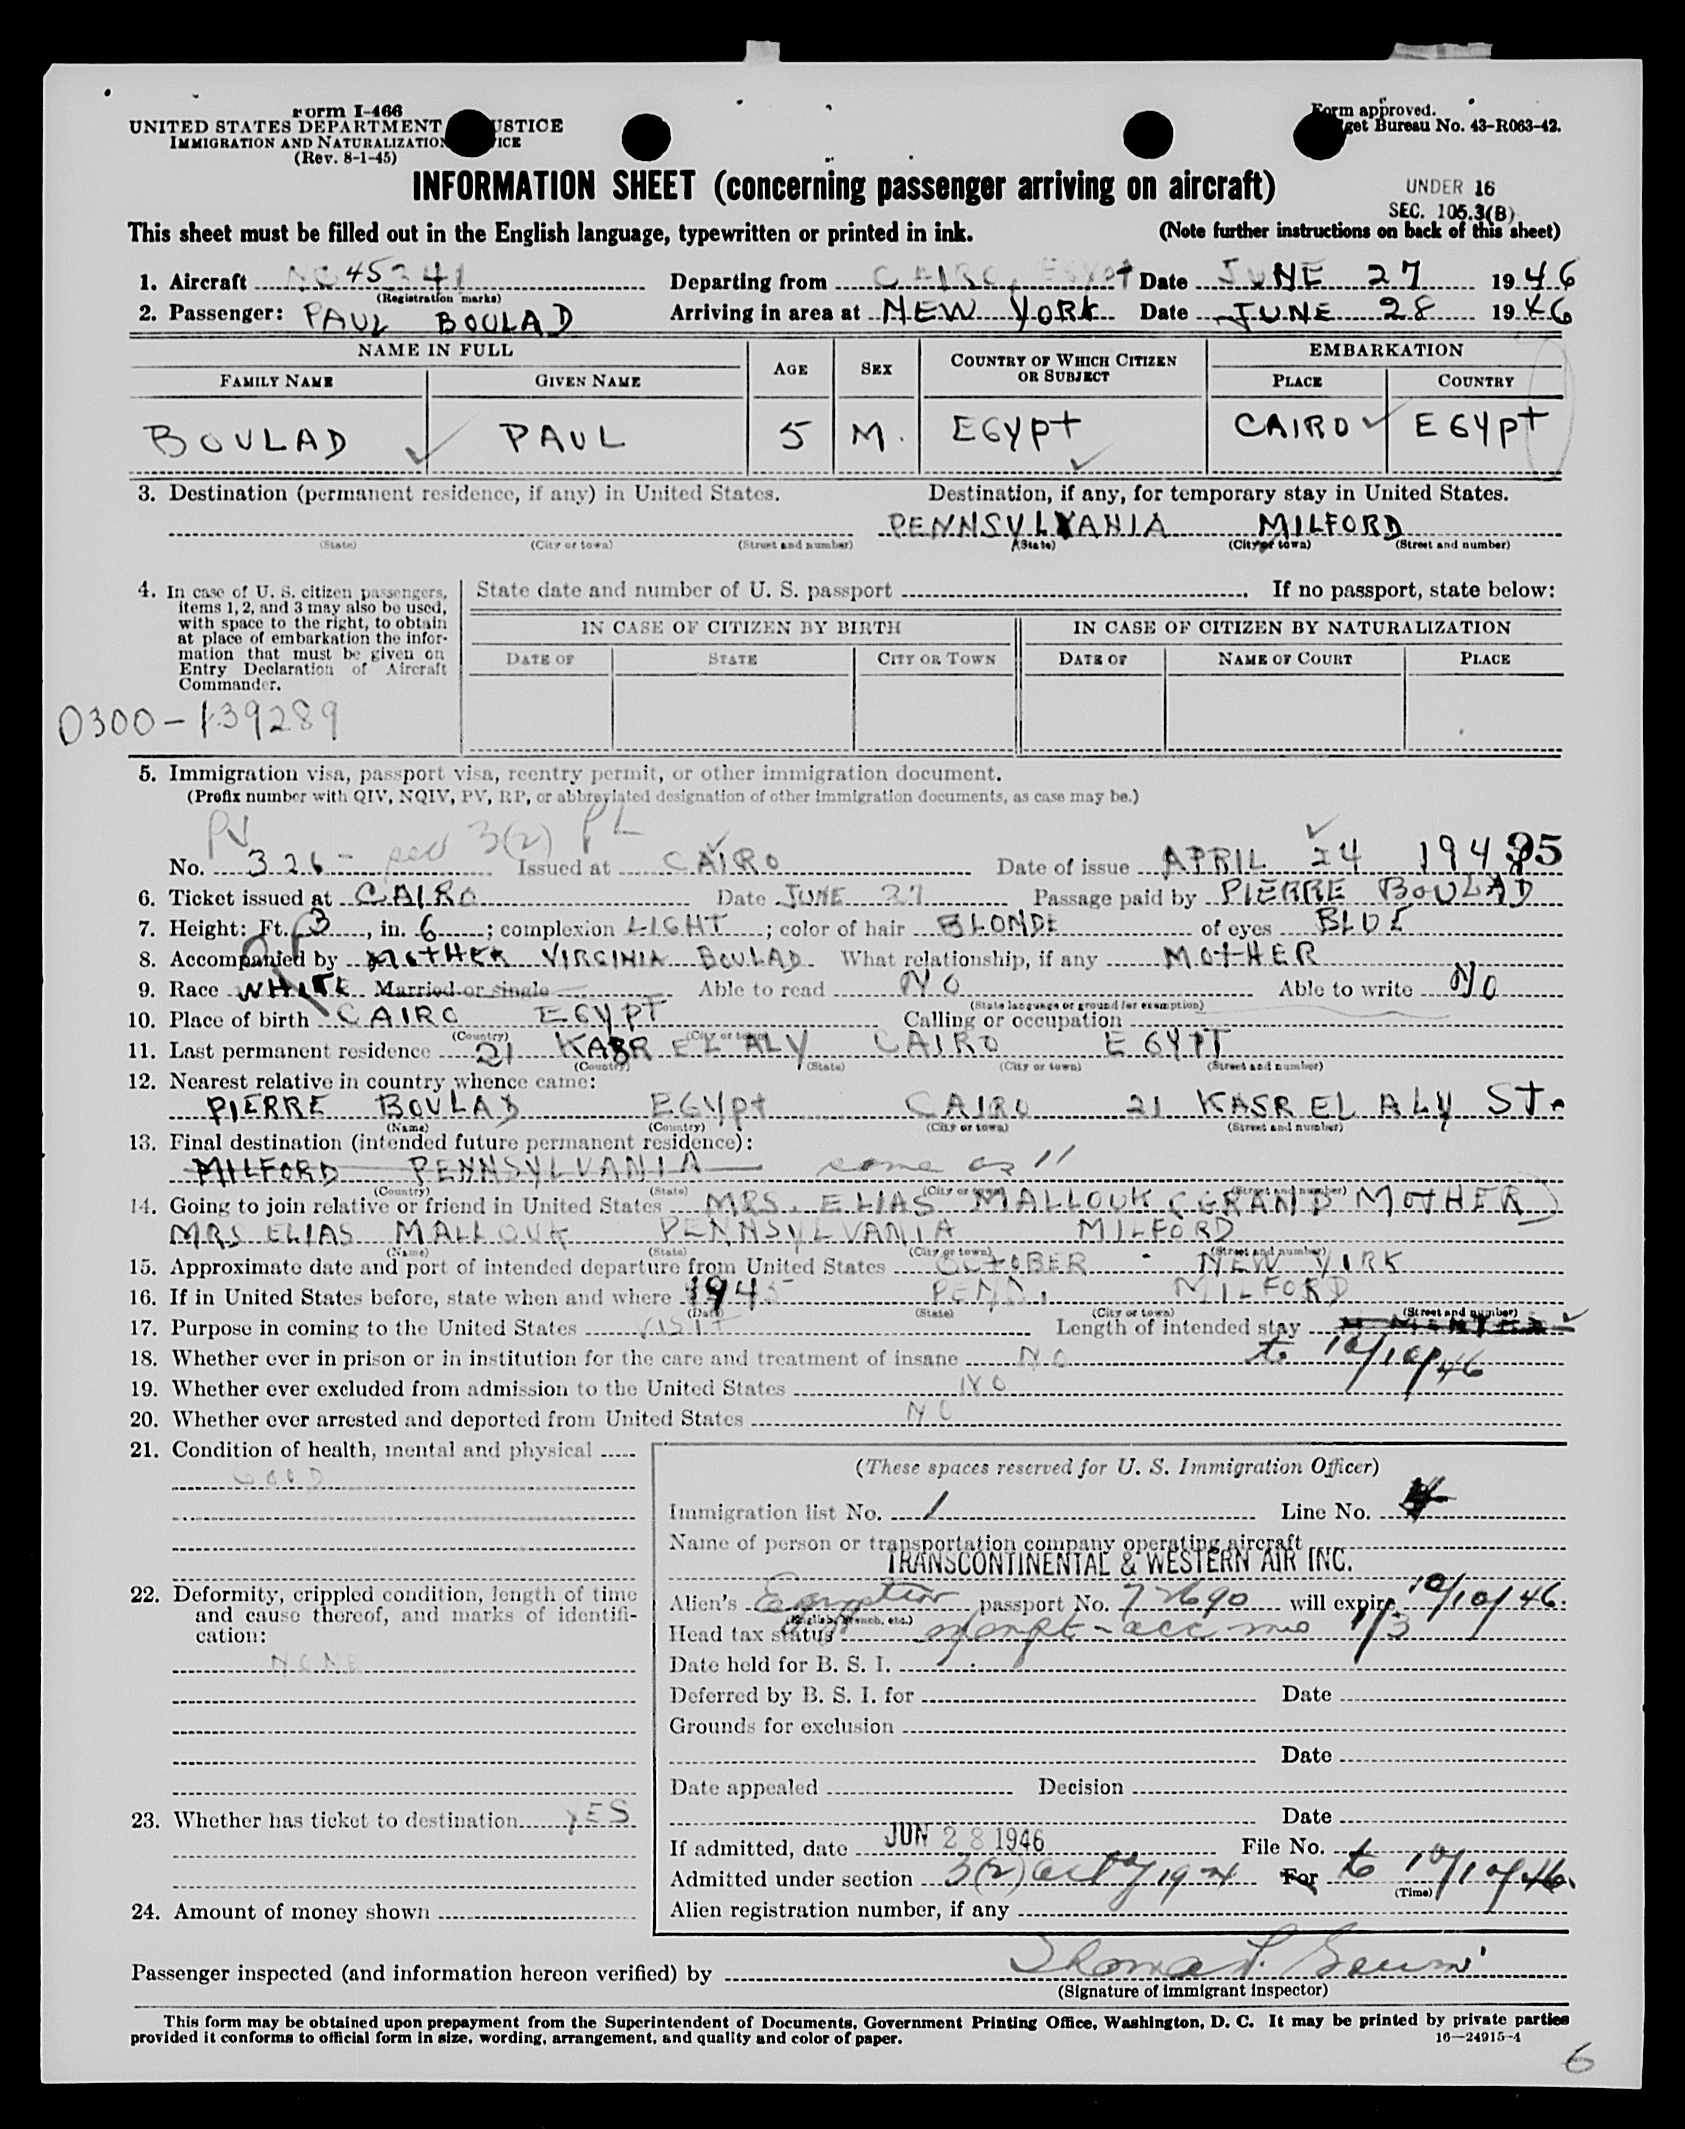 Form I-466
UNITED STATES DEPARTMENT JUSTICE
IMMIGRATION AND NATURALIZATION
(Rev. 8-1-45)
Form approved.
Budget Bureau No. 43-R063-42.
INFORMATION SHEET (concerning passenger arriving on aircraft)
UNDER 16
SEC. 105.3(B)
This sheet must be filled out in the English language, typewritten or printed in ink. (Note further instructions on back of this sheet)
1. Aircraft NC 45341 Departing from CAIRO, EGYPT Date JUNE 27 1946
(Registration marks)
2. Passenger: PAUL BOULAD Arriving in area at NEW YORK Date JUNE 28 1946
NAME IN FULL AGE SEX COUNTRY OF WHICH CITIZEN OR SUBJECT EMBARKATION
FAMILY NAME GIVEN NAME PLACE COUNTRY
BOULAD PAUL 5 M. EGYPT CAIRO EGYPT
3. Destination (permanent residence, if any) in United States. Destination, if any, for temporary stay in United States.
PENNSYLVANIA MILFORD
(State) (City or town) (Street and number) (State) (City or town) (Street and number)
4. In case of U. S. citizen passengers, items 1, 2, and 3 may also be used, with space to the right, to obtain at place of embarkation the information that must be given on Entry Declaration of Aircraft Commander.
State date and number of U. S. passport If no passport, state below:
IN CASE OF CITIZEN BY BIRTH IN CASE OF CITIZEN BY NATURALIZATION
DATE OF STATE CITY OR TOWN DATE OF NAME OF COURT PLACE
0300-139289
5. Immigration visa, passport visa, reentry permit, or other immigration document.
(Prefix number with QIV, NQIV, PV, RP, or abbreviated designation of other immigration documents, as case may be.)
PV 3(2) PL
No. 326 Issued at CAIRO Date of issue APRIL 24 194
6. Ticket issued at CAIRO Date JUNE 27 Passage paid by PIERRE BOULAD
7. Height: Ft. 3, in. 6; complexion LIGHT; color of hair BLONDE of eyes BLUE
8. Accompanied by MOTHER VIRGINIA BOULAD What relationship, if any MOTHER
9. Race WHITE Married or single Able to read NO Able to write NO
(State language or ground for exemption)
10. Place of birth CAIRO EGYPT Calling or occupation
(Country) (City or town)
11. Last permanent residence 21 KASR EL ALY CAIRO EGYPT
(Country) (State) (City or town) (Street and number)
12. Nearest relative in country whence came:
PIERRE BOULAD EGYPT CAIRO 21 KASR EL ALY ST.
(Name) (Country) (City or town) (Street and number)
13. Final destination (intended future permanent residence):
MILFORD PENNSYLVANIA same as 11
(Country) (State) (City or town) (Street and number)
14. Going to join relative or friend in United States MRS. ELIAS MALLOUK (GRAND MOTHER)
MRS ELIAS MALLOUK PENNSYLVANIA MILFORD
(Name) (State) (City or town) (Street and number)
15. Approximate date and port of intended departure from United States OCTOBER - NEW YORK
16. If in United States before, state when and where 1945 PENN. MILFORD
(Date) (State) (City or town) (Street and number)
17. Purpose in coming to the United States VISIT Length of intended stay
18. Whether ever in prison or in institution for the care and treatment of insane NO to 10/10/46
19. Whether ever excluded from admission to the United States NO
20. Whether ever arrested and deported from United States NO
21. Condition of health, mental and physical
GOOD
22. Deformity, crippled condition, length of time and cause thereof, and marks of identification:
NONE
23. Whether has ticket to destination YES
24. Amount of money shown
(These spaces reserved for U. S. Immigration Officer)
Immigration list No. 1 Line No.
Name of person or transportation company operating aircraft
TRANSCONTINENTAL & WESTERN AIR INC.
Alien's Egyptian passport No. 72690 will expire 10/10/46.
(English, French, etc.)
Head tax status exempt - acc 1/3
Date held for B. S. I.
Deferred by B. S. I. for Date
Grounds for exclusion
Date
Date appealed Decision
Date
If admitted, date JUN 28 1946 File No.
Admitted under section 3(2) Act of 1924 For to 10/10/46.
(Time)
Alien registration number, if any
Passenger inspected (and information hereon verified) by
(Signature of immigrant inspector)
This form may be obtained upon prepayment from the Superintendent of Documents, Government Printing Office, Washington, D. C. It may be printed by private parties
provided it conforms to official form in size, wording, arrangement, and quality and color of paper. 16—24915-4
6